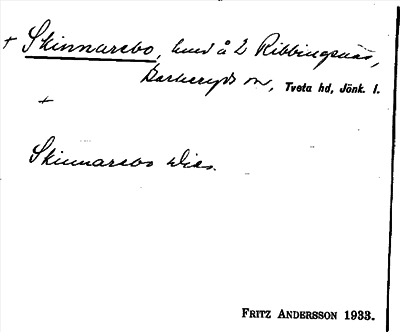 + Skinnarebo, hmd å 2 Ribbingsnäs,
Barkeryds sn, Tveta hd, Jönk. l.
+
Skinnarebo dies.
FRITZ ANDERSSON 1933.